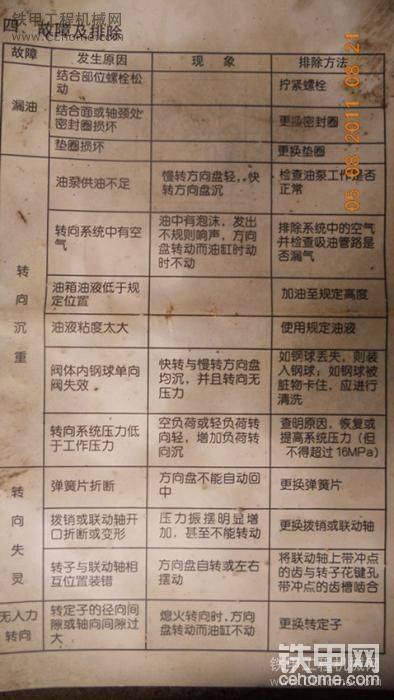 铁甲工程机械网
www.Cehome.com
四、故障及排除
故障
发生原因
现 象
排除方法
漏油
结合部位螺栓松
动
拧紧螺栓
结合面或轴颈处
密封圈损坏
更换密封圈
垫圈损坏
更换垫圈
转向沉重
油泵供油不足
慢转方向盘轻，快
转方向盘沉
检查油泵工作是否
正常
转向系统中有空
气
油中有泡沫，发出
不规则响声，方向
盘转动而油缸时动
时不动
排除系统中的空气
并检查吸油管路是
否漏气
油箱油液低于规
定位置
加油至规定高度
油液粘度太大
使用规定油液
阀体内钢球单向
阀失效
快转与慢转方向盘
均沉，并且转向无
压力
如钢球丢失，则装
入钢球；如钢球被
脏物卡住，应进行
清洗
转向系统压力低
于工作压力
空负荷或轻负荷转
向轻，增加负荷转
向沉
查明原因，恢复或
提高系统压力（但
不得超过16MPa）
转向失灵
弹簧片折断
方向盘不能自动回
中
更换弹簧片
拨销或联动轴开
口折断或变形
压力振摆明显增
加，甚至不能转动
更换拨销或联动轴
转子与联动轴相
互位置装错
方向盘自转或左右
摆动
将联动轴上带冲点
的齿与转子花键孔
带冲点的齿槽啮合
无人力
转向
转定子的径向间
隙或轴向间隙过
大
熄火转向时，方向
盘转动而油缸不动
更换转定子
05/08/2011 08:21
铁甲网
cehome.com